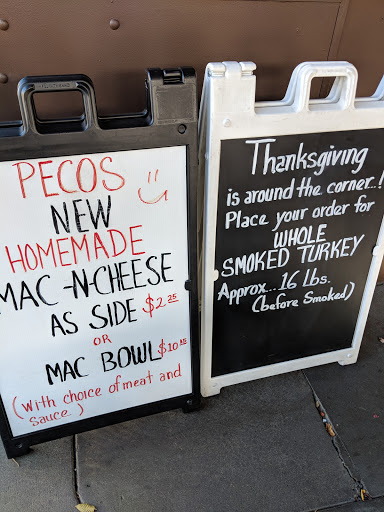 PECOS
NEW
HOMEMADE
MAC-N-CHEESE
AS SIDE $2.25
OR
MAC BOWL $10.95
(With choice of meat and
Sauce)
Thanksgiving
is around the corner..!
Place your order for
WHOLE
SMOKED TURKEY
Approx... 16 Lbs.
(before Smoked)